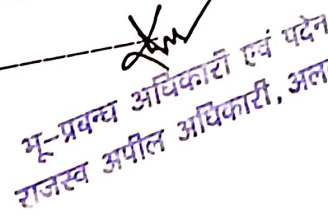 भू-प्रबन्ध अधिकारी एवं पदेन
राजस्व अपील अधिकारी, अल